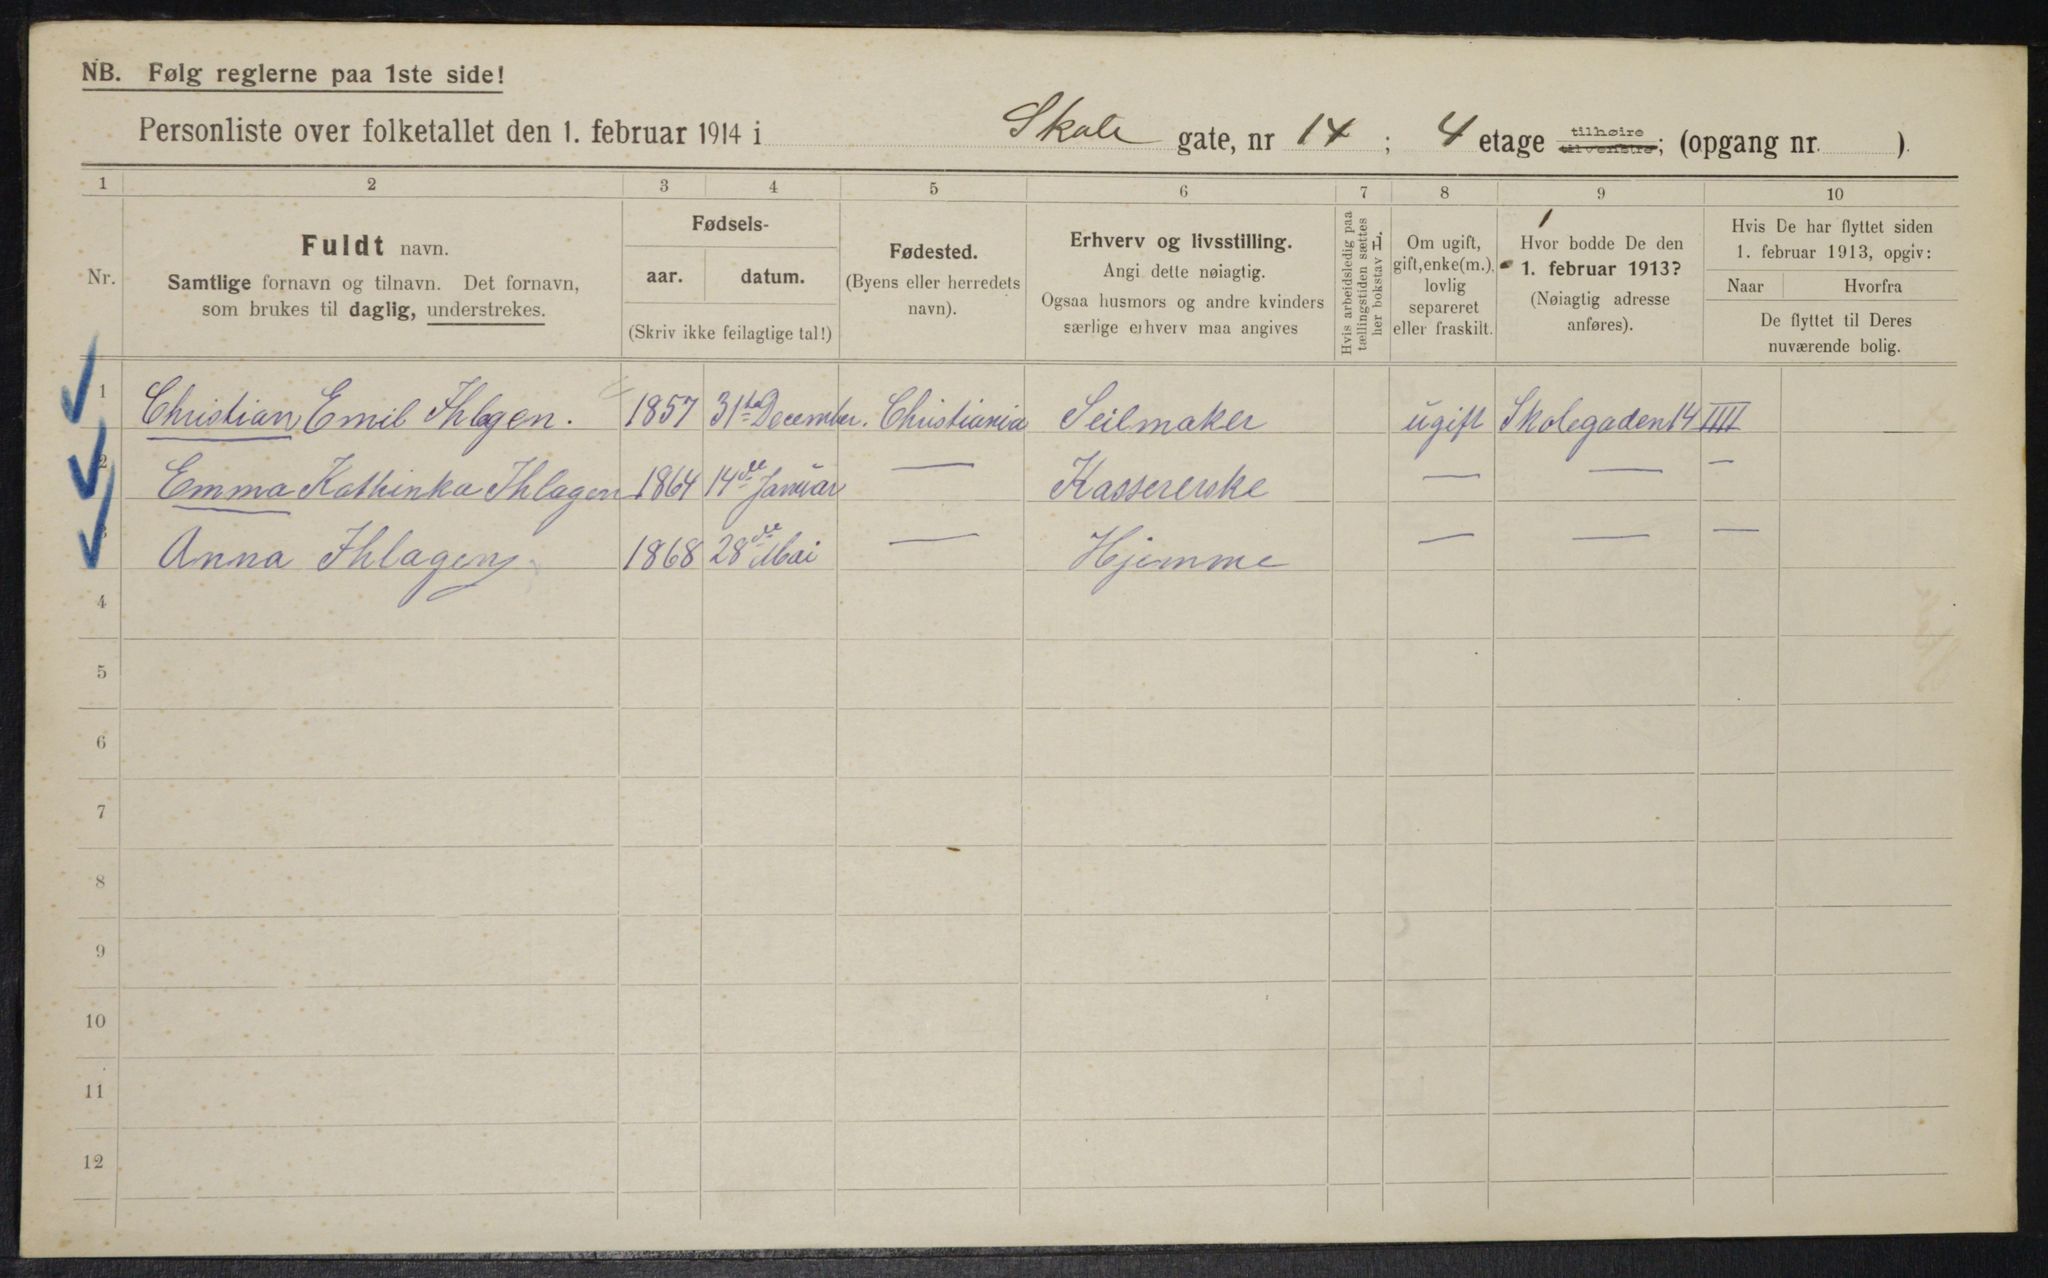 NB. Følg reglerne paa 1ste side!
Personliste over folketallet den 1. februar 1914 i Skole gate, nr 14 ; 4 etage tilhøire tilvenstre; (opgang nr. ).
1 2 3 4 5 6 7 8 9 10
Nr.
Fuldt navn.
Samtlige fornavn og tilnavn. Det fornavn,
som brukes til daglig, understrekes.
Fødsels-
aar. datum.
(Skriv ikke feilagtige tal!)
Fødested.
(Byens eller herredets
navn).
Erhverv og livsstilling.
Angi dette nøiagtig.
Ogsaa husmors og andre kvinders
særlige erhverv maa angives
Hvis arbeidsledig paa
tællingstiden sættes
her bokstav L.
Om ugift,
gift, enke(m.),
lovlig
separeret
eller fraskilt.
Hvor bodde De den
1. februar 1913?
(Nøiagtig adresse
anføres).
Hvis De har flyttet siden
1. februar 1913, opgiv:
Naar Hvorfra
De flyttet til Deres
nuværende bolig.
1 Christian Emil Ihlagen. 1857 31te December. Christiania Seilmaker ugift Skolegaden 14 IIII —
2 Emma Kathinka Ihlagen 1864 14de Januar — Kassererske — — —
3 Anna Ihlagen 1868 28de Mai — Hjemme — — —
4
5
6
7
8
9
10
11
12